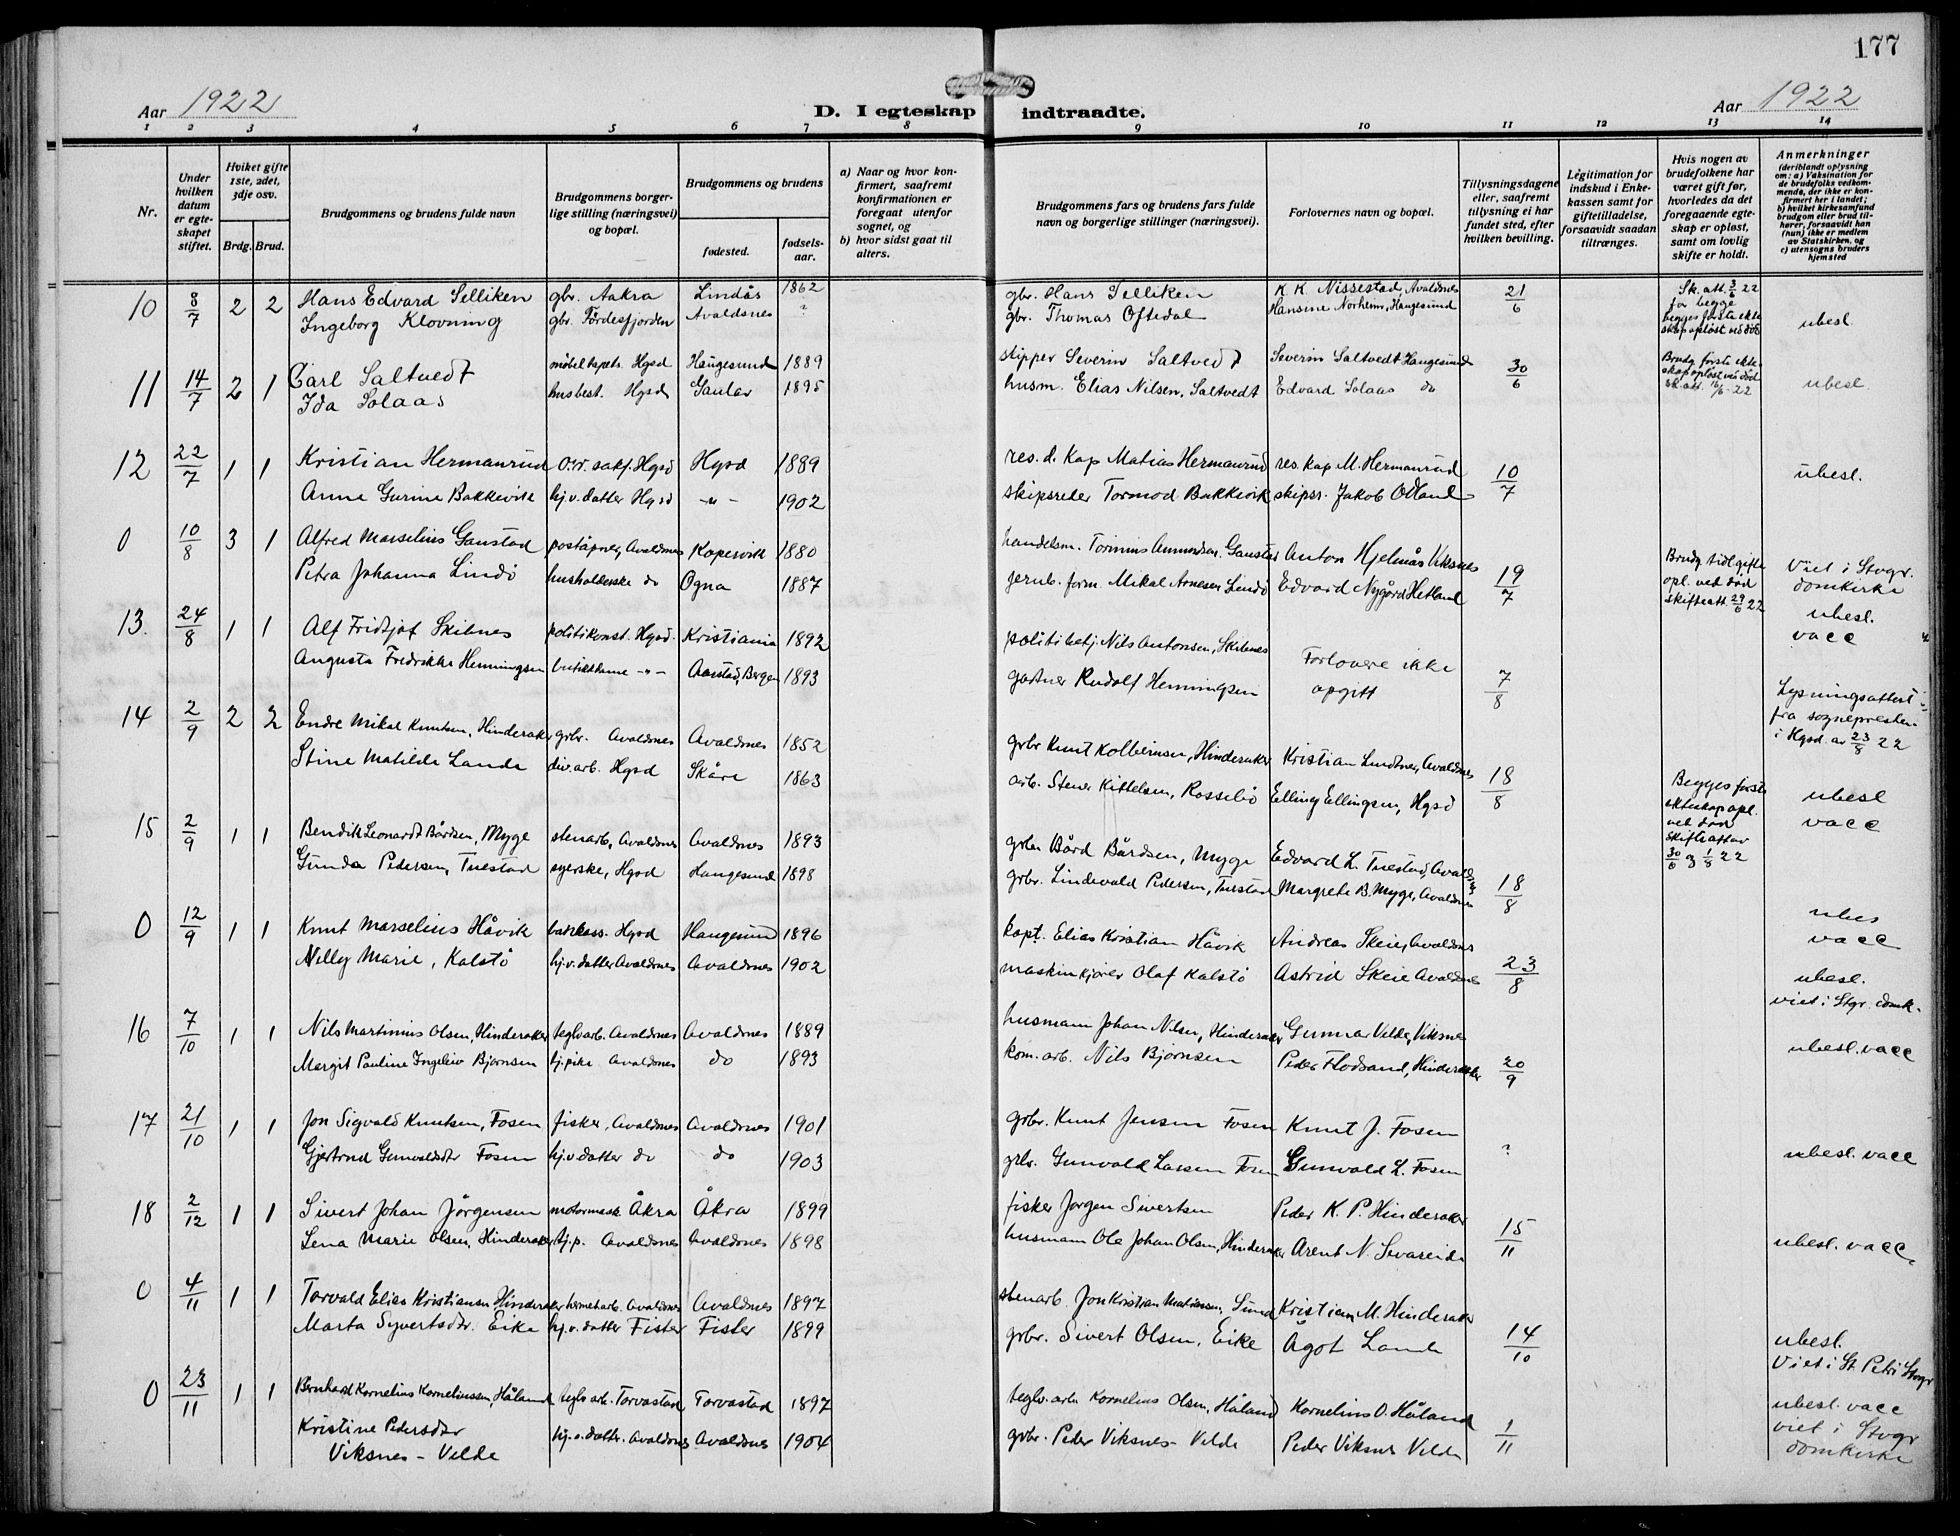 177
Aar 1922
D. I egteskap indtraadte.
Aar 1922
1 2 3 4 5 6 7 8 9 10 11 12 13 14
Nr.
Under hvilken datum er egteskapet stiftet.
Hviket gifte 1ste, 2det, 3dje osv.
Brdg. Brud.
Brudgommens og brudens fulde navn
Brudgommens borgerlige stilling (næringsvei) og bopæl.
Brudgommens og brudens
fødested.
fødselsaar.
a) Naar og hvor konfirmert, saafremt konfirmationen er foregaat utenfor sognet, og
b) hvor sidst gaat til alters.
Brudgommens fars og brudens fars fulde navn og borgerlige stillinger (næringsvei).
Forlovernes navn og bopæl.
Tillysningsdagene eller, saafremt tillysning ei har fundet sted, efter hvilken bevilling.
Legitimation for indskud i Enkekassen samt for giftetilladelse, forsaavidt saadan tiltrænges.
Hvis nogen av brudefolkene har været gift før, hvorledes da det foregaaende egteskap er opløst, samt om lovlig skifte er holdt.
Anmerkninger (deriblandt oplysning om: a) Vaksination for de brudefolks vedkommende, der ikke er konfirmert her i landet; b) hvilket kirkesamfund brudgom eller brud tilhører, forsaavidt han (hun) ikke er medlem av Statskirken, og c) utensogns bruders hjemsted
10 8/7 2 2 Hans Edvard Selliken gbr. Aakra Lindås 1862 gbr. Hans Selliken K K Nissestad, Avaldsnes 21/6 Sk. att. 3/6 22 for begge
Ingeborg Klovning gbr. Førdesfjorden Avaldsnes ? gbr. Thomas Oftedal Hansine Norheim, Haugesund begges første ekteskap opløst ved död ubesl.
11 14/7 2 1 Carl Saltvedt møbeltapets. Hgsd Haugesund 1889 skipper Severin Saltvedt Severin Saltvedt Haugesund 30/6 Brudg første ekteskap opløst ved död sk. att. 16/6-22 ubesl.
Ida Solaas husbest. Hgsd Gaular 1895 husm. Elias Nilsen, Saltvedt Edvard Solaas do
12 22/7 1 1 Kristian Hermanrud o.r. sakf. Hgsd Hgsd 1889 res. d. Kap Matias Hermanrud res. kap M. Hermanrud 10/7 ubesl.
Anne Gurine Bakkevik hj.v. datter Hgsd -"- 1902 skipsreder Tormod Bakkevik skipsr. Jakob Odland
0 10/8 3 1 Alfred Marselius Gaustad poståpner, Avaldsnes Kopervik 1880 handelsm. Tormius Amundsen Gaustad Anton Hjelmås Viksnes 19/7 Brudg tidl. gifte opl. ved död skifteatt. 29/6 22 Viet i Stvgr. domkirke
Petra Johanna Lindö husholderske do Ogna 1887 jernb. form. Mikal Arnesen Lindö Edvard Nygård Hetland ubesl.
13. 24/8 1 1 Alf Fridtjof Skibnes politikonst. Hgsd. Kristiania 1892 politibetj. Nils Antonsen, Skibnes Forlovere ikke opgitt 7/8 vacc
Augusta Fredrikke Henningsen butikkdame -"- Aarstad, Bergen 1893 gartner Rudolf Henningsen Lysningsattest fra sognepresten i Hgsd. av 23/8 22
14 2/9 2 2 Endre Mikal Knutsen, Hinderaker grbr. Avaldsnes Avaldsnes 1852 grbr Knut Kolbeinsen, Hinderaker Kristian Lindtner, Avaldsnes 18/8 Begges første ekteskap opl. ved död skifteatt av 30/6 og 1/8 22 ubesl
Stine Matilde Lande div. arb. Hgsd Skåre 1863 arb. Stener Kittelsen, Rossebö Elling Ellingsen, Hgsd vacc
15 2/9 1 1 Bendik Leonardt Bårdsen, Myge stenarb, Avaldsnes Avaldsnes 1893 grbr Bård Bårdsen, Myge Edvard L. Tuestad, Avaldsnes 18/8
Gunda Pedersen, Tuestad syerske, Hgsd Haugesund 1898 grbr. Lindevald Pedersen, Tuestad Margrete B. Myge, Avaldsnes ubes vacc
0 12/9 1 1 Knut Marselius Håvik bankass. Hgsd Haugesund 1896 kapt. Elias Kristian Håvik Andreas Skeie, Avaldsnes 23/8
Nelly Marie, Kalstö hj.v. datter Avaldsnes Avaldsnes 1902 maskinkjører Olaf Kalstö Astrid Skeie Avaldsnes ubesl. viet i Stgr. domk.
16 7/10 1 1 Nils Martinius Olsen, Hinderaker teglv arb. Avaldsnes Avaldsnes 1889 husmann Johan Nilsen, Hinderaker Gunnar Velde, Viksnes 20/9 ubesl. vacc
Margit Pauline Ingeleiv Bjørnsen hj. pike Avaldsnes do 1893 kom. arb. Nils Bjørnsen Peder Flodsand, Hinderaker
17 21/10 1 1 Jon Sigvald Knutsen, Fosen fisker, Avaldsnes Avaldsnes 1901 grbr. Knut Jensen Fosen Knut J. Fosen ? ubesl. vacc
Gjertrud Gunvaldsdtr Fosen hj.v. datter do do 1903 grbr. Gunvald Larsen Fosen Gunvald L. Fosen
18 2/12 1 1 Sivert Johan Jörgensen motormask Åkra Åkra 1899 fisker Jørgen Sivertsen Peder K. P. Hinderaker 15/11 ubesl. vacc.
Lena Marie Olsen, Hinderaker tj.p. Avaldsnes Avaldsnes 1898 husmann Ole Johan Olsen, Hinderaker Arent N. Sevareide
0 4/11 1 1 Torvald Elias Kristiansen Hinderaker hermet arb. Avaldsnes Avaldsnes 1897 stenarb. Jon Kristian Matiassen, Sund Kristian M. Hinderaker 14/10
Marta Syvertsdtr. Eike hj.v. datter Fister Fister 1899 grbr. Sivert Olsen, Eike Ågot Lande ubesl. Viet i St. Petri Stvgr
0 23/11 1 1 Bernhard Kornelius Korneliussen, Håland teglv arb. Torvastad Torvastad 1897 teglv. arb Kornelius Olsen, Håland Kornelius O. Håland 1/11 ubesl. vacc
Kristine Pedersdtr Viksnes - Velde hj.v. datter. Avaldsnes Avaldsnes 1904 grbr. Peder Viksnes - Velde Peder Viksnes Velde viet i Stvgr domkirke